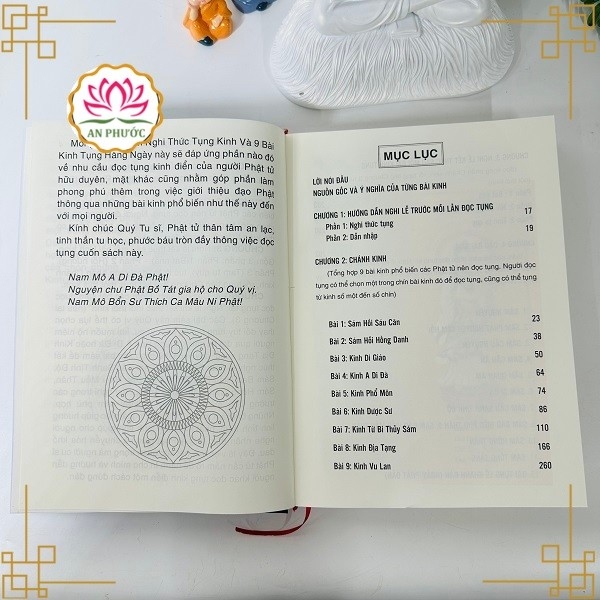 AN PHƯỚC
Nghi Thức Tụng Kinh Và 9 Bài
Kinh Tụng Hàng Ngày này sẽ đáp ứng phần nào đó
về nhu cầu đọc tụng kinh điển của người Phật tử
hữu duyên, mặt khác cũng nhằm góp phần làm
phong phú thêm trong việc giới thiệu đạo Phật
thông qua những bài kinh phổ biến như thế này đến
với mọi người.
Kính chúc Quý Tu sĩ, Phật tử thân tâm an lạc,
tinh thần tu học, phước báu tròn đầy thông việc đọc
tụng cuốn sách này.
Nam Mô A Di Đà Phật!
Nguyện chư Phật Bồ Tát gia hộ cho Quý vị.
Nam Mô Bổn Sư Thích Ca Mâu Ni Phật!
MỤC LỤC
LỜI NÓI ĐẦU
NGUỒN GỐC VÀ Ý NGHĨA CỦA TỪNG BÀI KINH
CHƯƠNG 1: HƯỚNG DẪN NGHI LỄ TRƯỚC MỖI LẦN ĐỌC TỤNG
Phần 1: Nghi thức tụng 17
Phần 2: Dẫn nhập 19
CHƯƠNG 2: CHÁNH KINH
(Tổng hợp 9 bài kinh phổ biến các Phật tử nên đọc tụng. Người đọc
tụng có thể chọn một trong chín bài kinh đó để đọc tụng, cũng có thể tụng
từ kinh số một đến số chín)
Bài 1: Sám Hối Sáu Căn 23
Bài 2: Sám Hối Hồng Danh 38
Bài 3: Kinh Di Giáo 50
Bài 4: Kinh A Di Đà 64
Bài 5: Kinh Phổ Môn 74
Bài 6: Kinh Dược Sư 86
Bài 7: Kinh Từ Bi Thủy Sám 110
Bài 8: Kinh Địa Tạng 166
Bài 9: Kinh Vu Lan 260